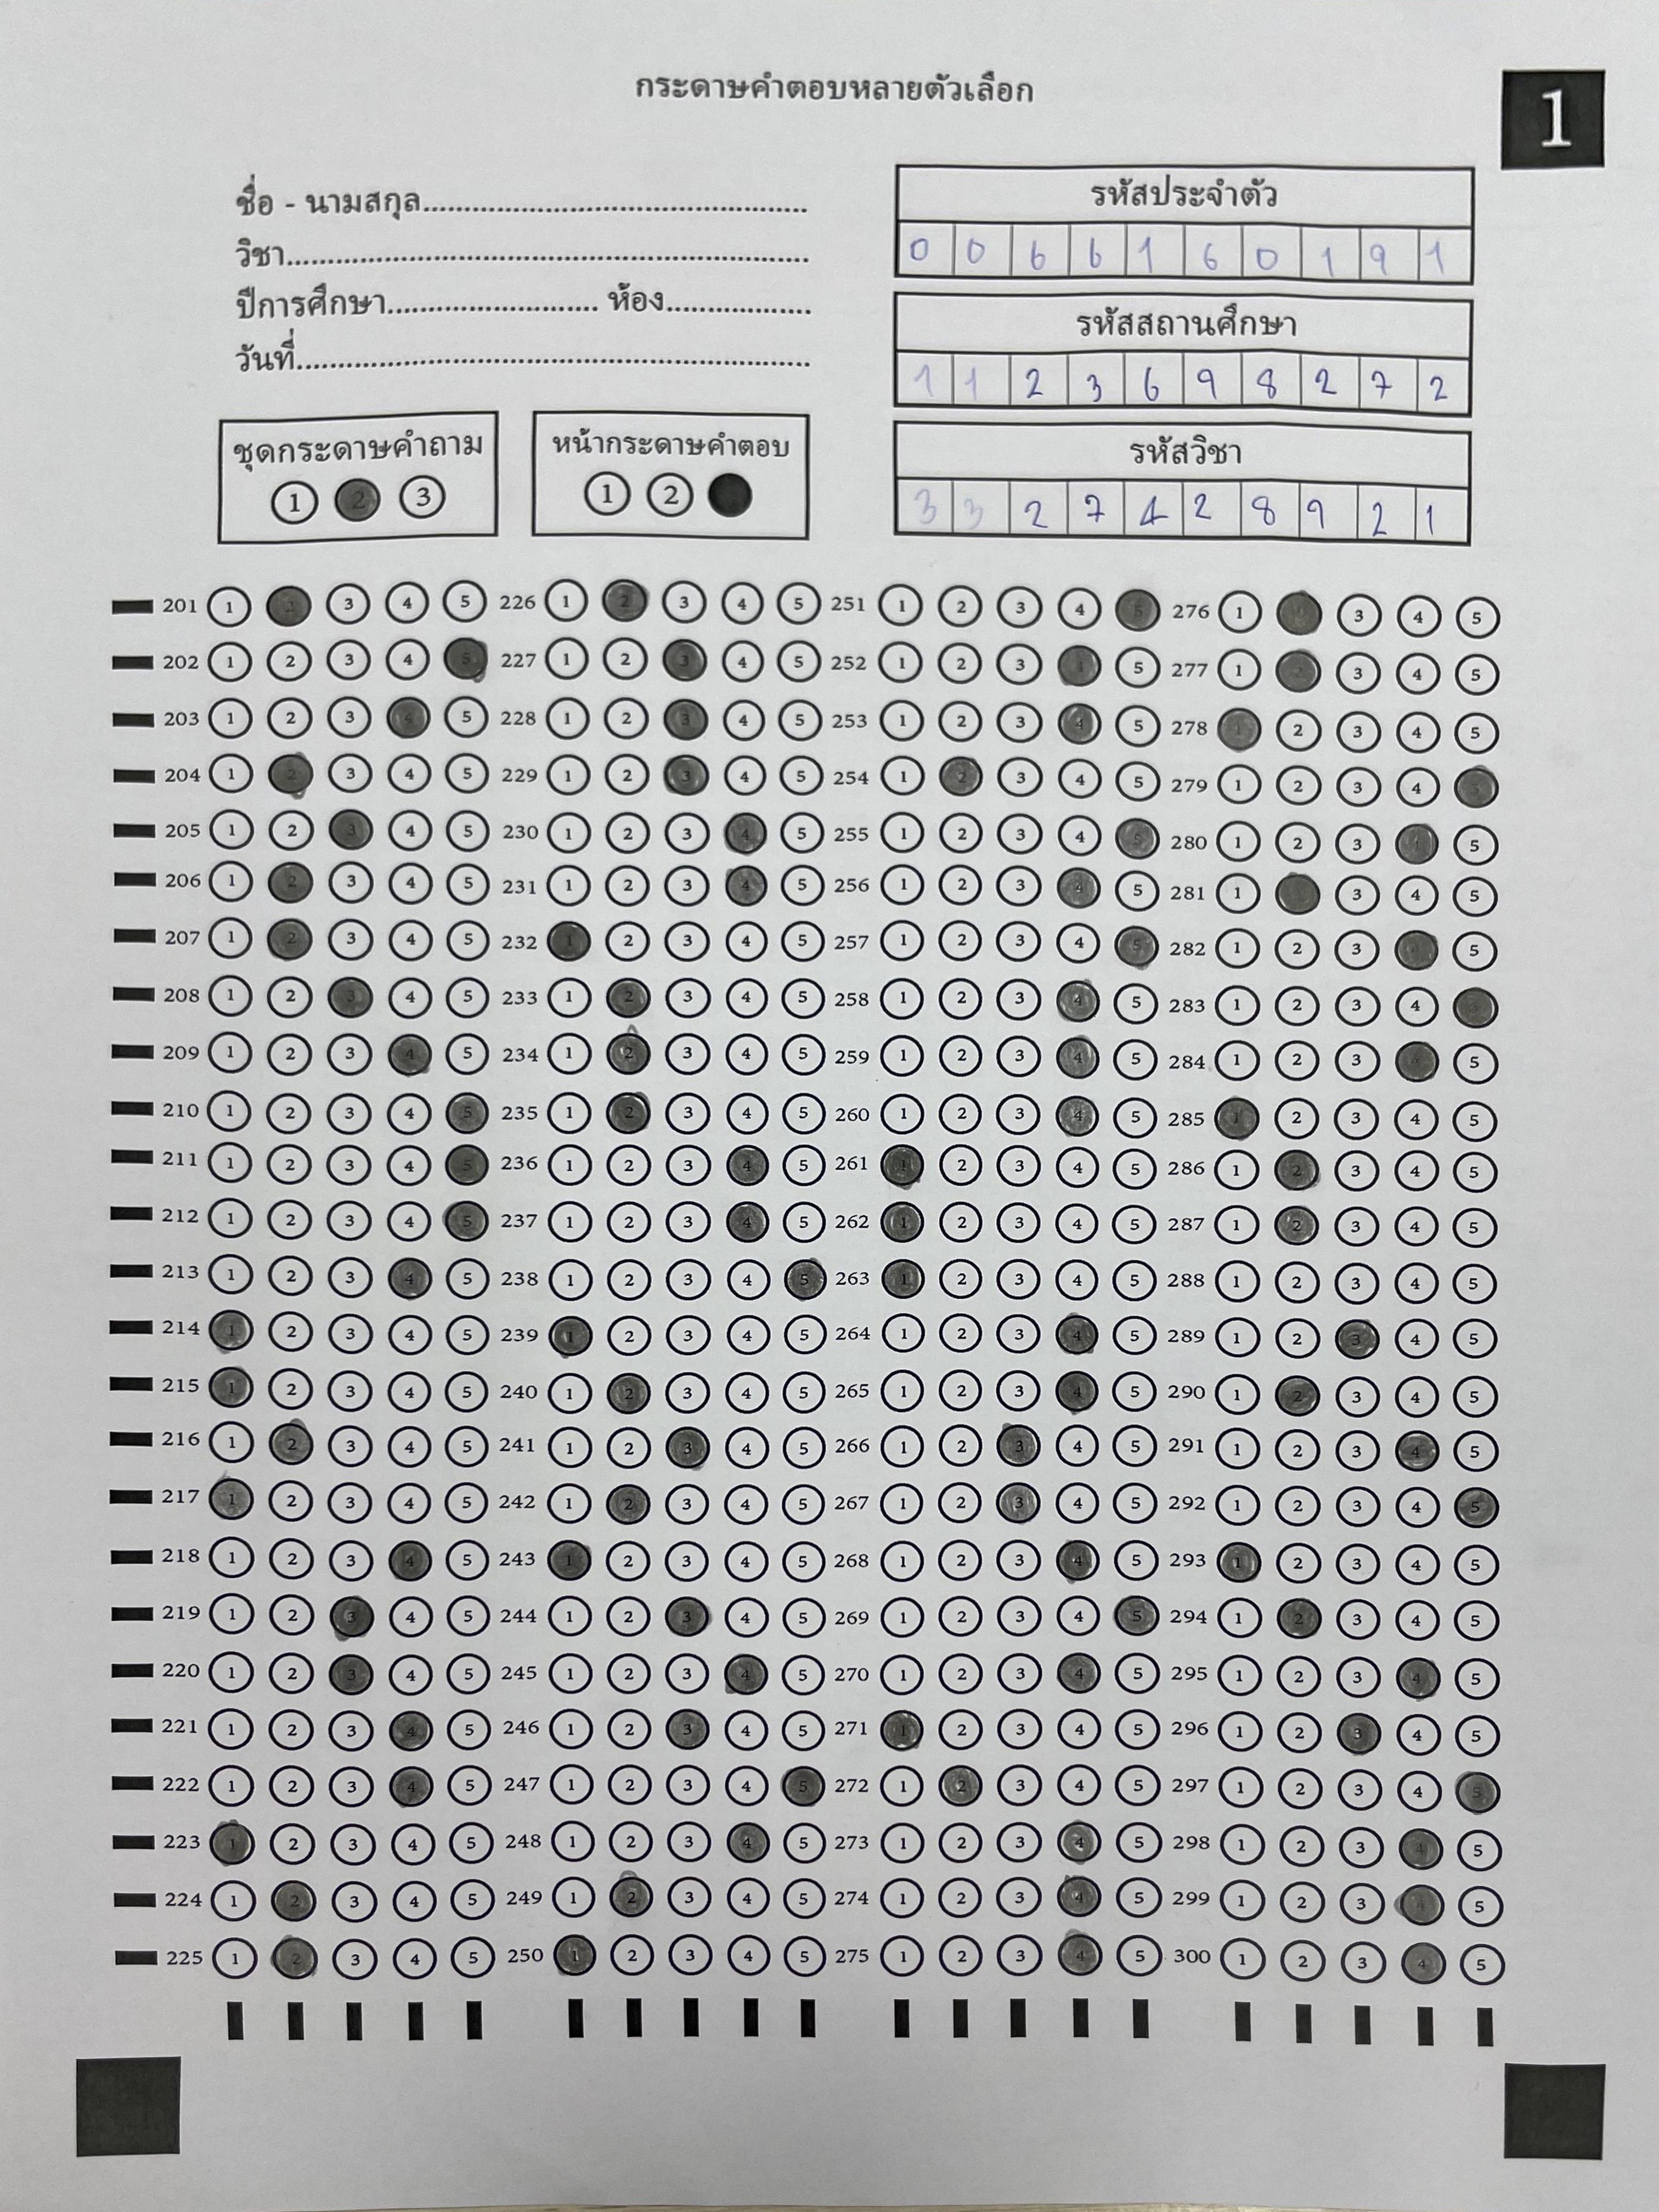 กระดาษคำตอบหลายตัวเลือก
1
ชื่อ - นามสกุล...............................................
วิชา................................................................
ปีการศึกษา.......................... ห้อง..................
วันที่...............................................................
รหัสประจำตัว
0 0 6 6 1 6 0 1 9 1
รหัสสถานศึกษา
1 1 2 3 6 9 8 2 7 2
รหัสวิชา
3 3 2 7 4 2 8 9 2 1
ชุดกระดาษคำถาม
1 2 3
หน้ากระดาษคำตอบ
1 2
201 1 2 3 4 5 226 1 2 3 4 5 251 1 2 3 4 5 276 1 2 3 4 5
202 1 2 3 4 5 227 1 2 3 4 5 252 1 2 3 4 5 277 1 2 3 4 5
203 1 2 3 4 5 228 1 2 3 4 5 253 1 2 3 4 5 278 1 2 3 4 5
204 1 2 3 4 5 229 1 2 3 4 5 254 1 2 3 4 5 279 1 2 3 4 5
205 1 2 3 4 5 230 1 2 3 4 5 255 1 2 3 4 5 280 1 2 3 4 5
206 1 2 3 4 5 231 1 2 3 4 5 256 1 2 3 4 5 281 1 3 4 5
207 1 2 3 4 5 232 1 2 3 4 5 257 1 2 3 4 5 282 1 2 3 4 5
208 1 2 3 4 5 233 1 2 3 4 5 258 1 2 3 4 5 283 1 2 3 4 5
209 1 2 3 4 5 234 1 2 3 4 5 259 1 2 3 4 5 284 1 2 3 4 5
210 1 2 3 4 5 235 1 2 3 4 5 260 1 2 3 4 5 285 1 2 3 4 5
211 1 2 3 4 5 236 1 2 3 4 5 261 1 2 3 4 5 286 1 2 3 4 5
212 1 2 3 4 5 237 1 2 3 4 5 262 1 2 3 4 5 287 1 2 3 4 5
213 1 2 3 4 5 238 1 2 3 4 5 263 1 2 3 4 5 288 1 2 3 4 5
214 1 2 3 4 5 239 1 2 3 4 5 264 1 2 3 4 5 289 1 2 3 4 5
215 1 2 3 4 5 240 1 2 3 4 5 265 1 2 3 4 5 290 1 2 3 4 5
216 1 2 3 4 5 241 1 2 3 4 5 266 1 2 3 4 5 291 1 2 3 4 5
217 1 2 3 4 5 242 1 2 3 4 5 267 1 2 3 4 5 292 1 2 3 4 5
218 1 2 3 4 5 243 1 2 3 4 5 268 1 2 3 4 5 293 1 2 3 4 5
219 1 2 3 4 5 244 1 2 3 4 5 269 1 2 3 4 5 294 1 2 3 4 5
220 1 2 3 4 5 245 1 2 3 4 5 270 1 2 3 4 5 295 1 2 3 4 5
221 1 2 3 4 5 246 1 2 3 4 5 271 1 2 3 4 5 296 1 2 3 4 5
222 1 2 3 4 5 247 1 2 3 4 5 272 1 2 3 4 5 297 1 2 3 4 5
223 1 2 3 4 5 248 1 2 3 4 5 273 1 2 3 4 5 298 1 2 3 4 5
224 1 2 3 4 5 249 1 2 3 4 5 274 1 2 3 4 5 299 1 2 3 4 5
225 1 2 3 4 5 250 1 2 3 4 5 275 1 2 3 4 5 300 1 2 3 4 5